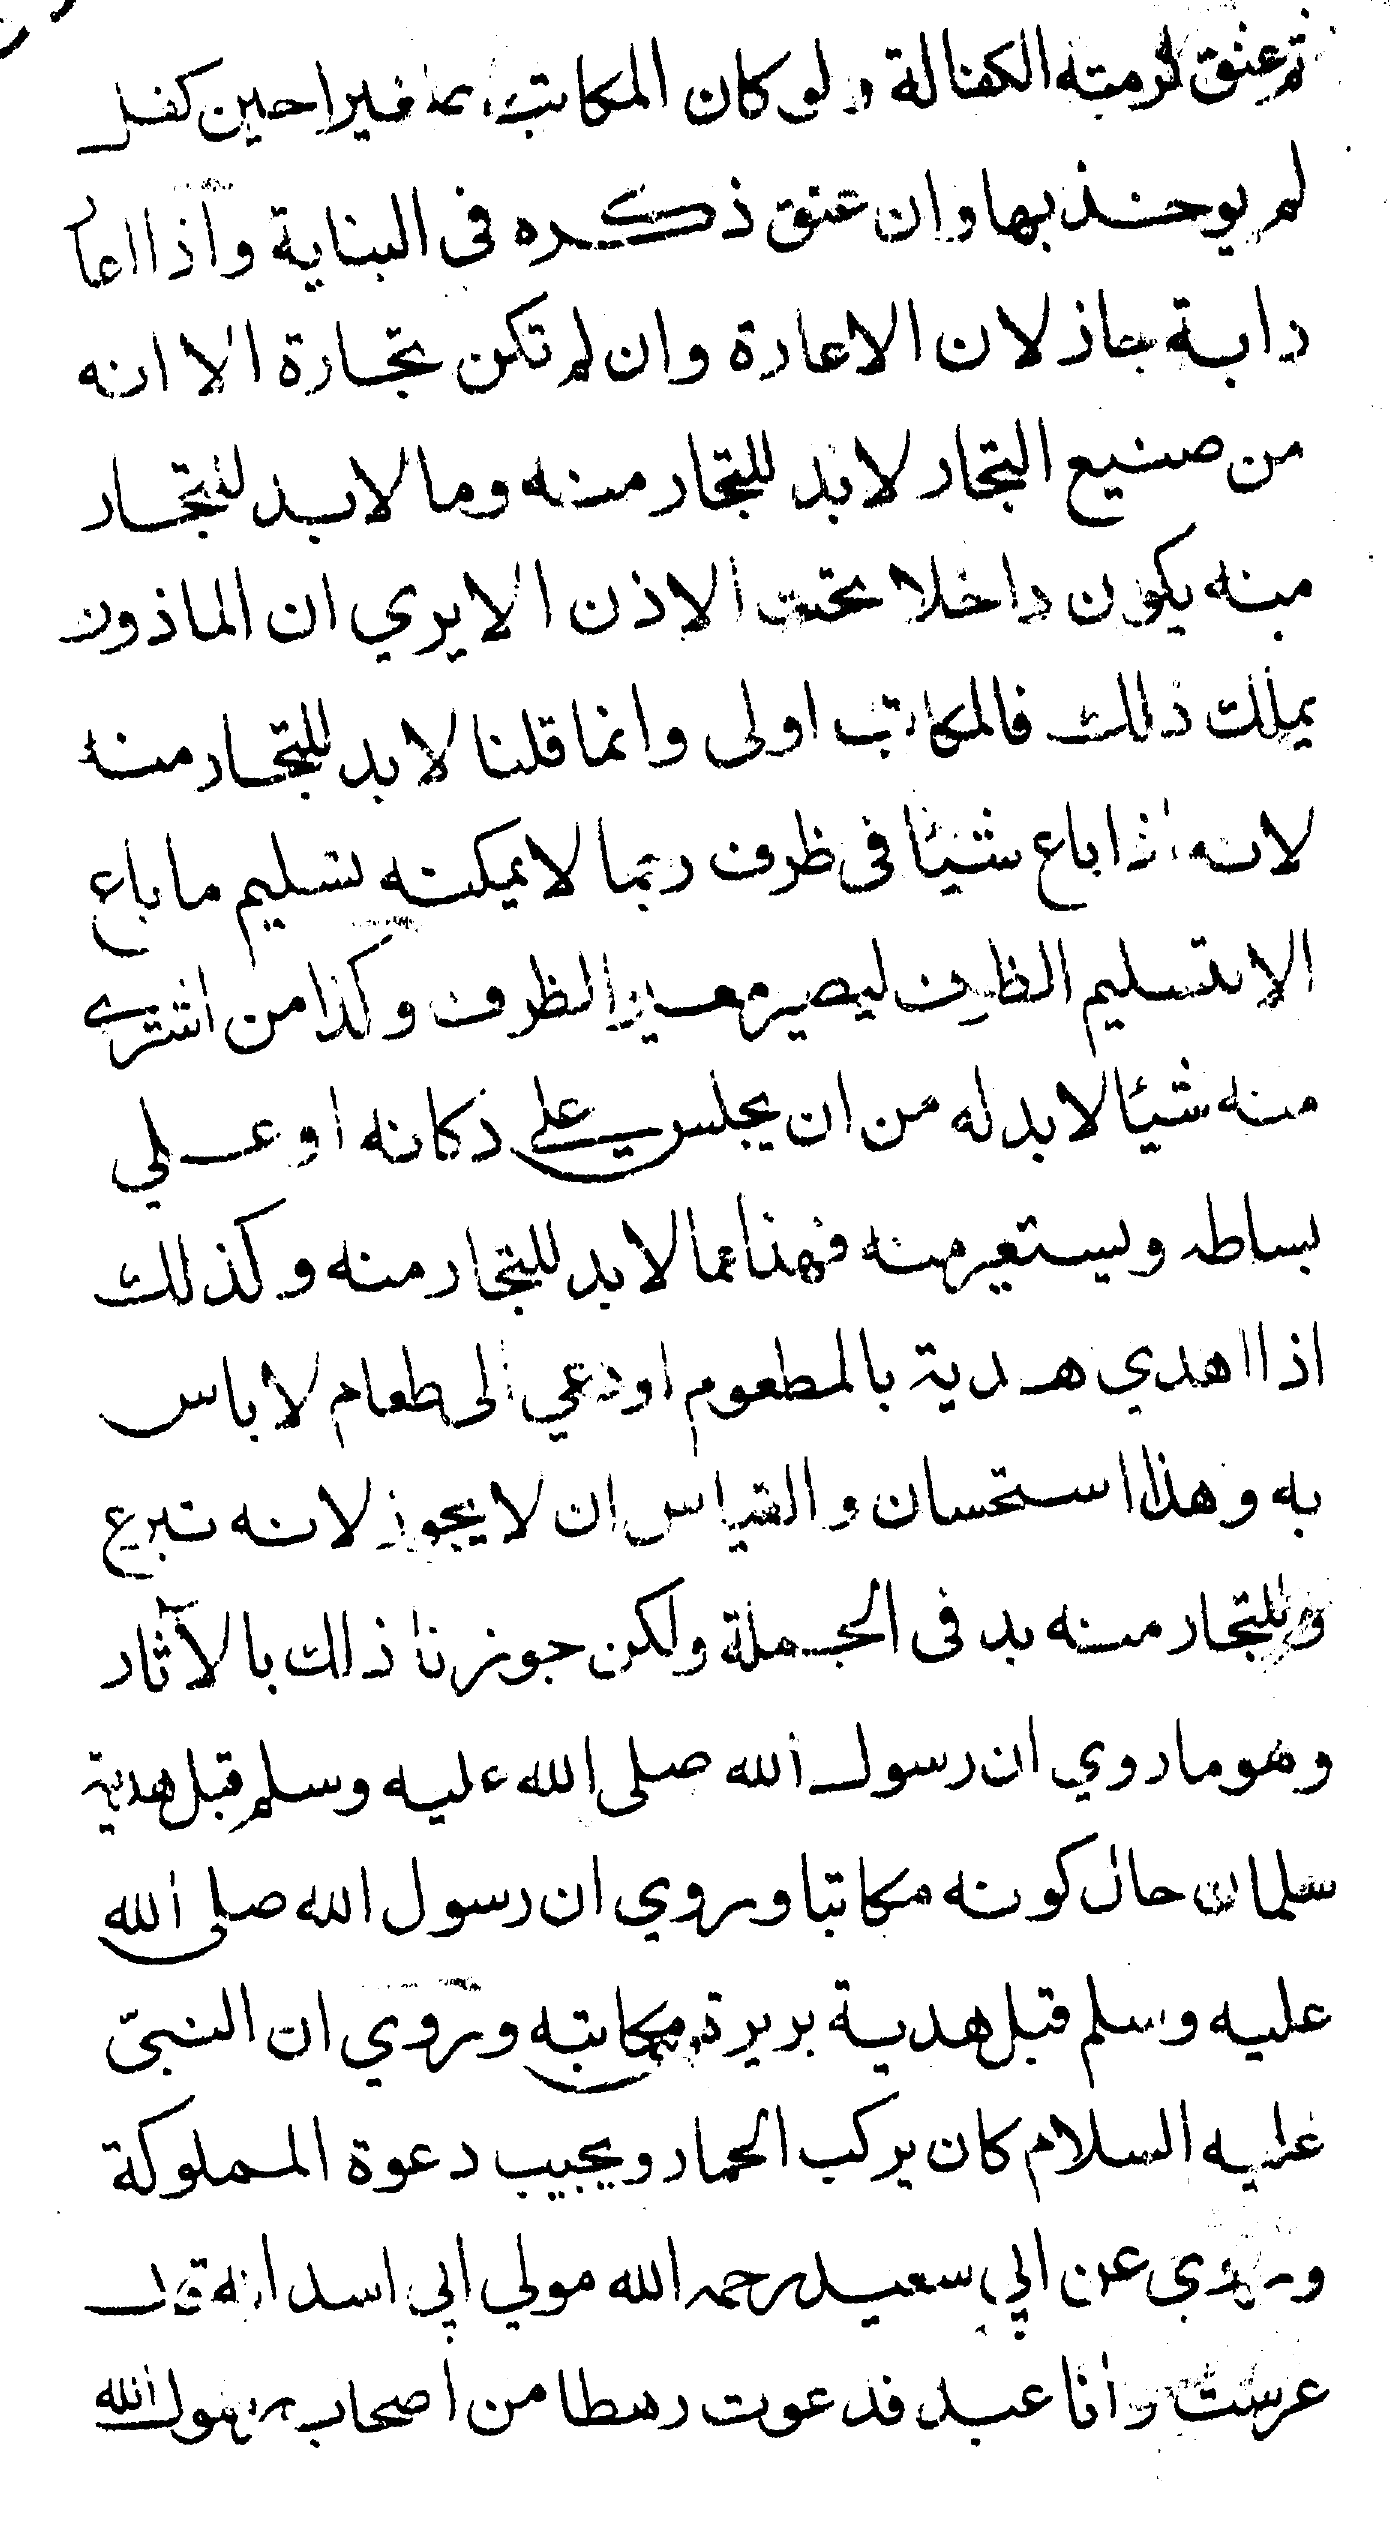 ثم عتق لزمته الكفالة ولو كان المكاتب صغيرا حين كفل
لم يوخذ بها وان عتق ذكره في البناية واذا اعار
دابة جاز لان الاعارة وان لم تكن تجارة الا انه
من صنيع التجار لا بد للتجار منه وما لا بد للتجار
منه يكون داخلا تحت الاذن الا يري ان الماذون
يملك ذلك فالمكاتب اولى وانما قلنا لا بد للتجار منه
لانه اذا باع شيئا في ظرف ربما لا يمكنه تسليم ما باع
الا بتسليم الظرف ليصير معير الظرف وكذا من اشترى
منه شيئا لا بد له من ان يجلس علي دكانه او علي
بساطه ويستعير منه فهذا مما لا بد للتجار منه وكذلك
اذا اهدي هدية بالمطعوم او دعي الى طعام لا باس
به وهذا استحسان والقياس ان لا يجوز لانه تبرع
وللتجار منه بد في الجملة ولكن جوزنا ذلك بالآثار
وهو ما روي ان رسول الله صلى الله عليه وسلم قبل هدية
سلمان حال كونه مكاتبا وروي ان رسول الله صلى الله
عليه وسلم قبل هدية بريرة مكاتبه وروي ان النبيّ
عليه السلام كان يركب الحمار ويجيب دعوة المملوكة
وروي عن ابي سعيد رحمه الله مولي ابي اسد انه قال
عرست وانا عبد فدعوت رهطا من اصحاب رسول الله